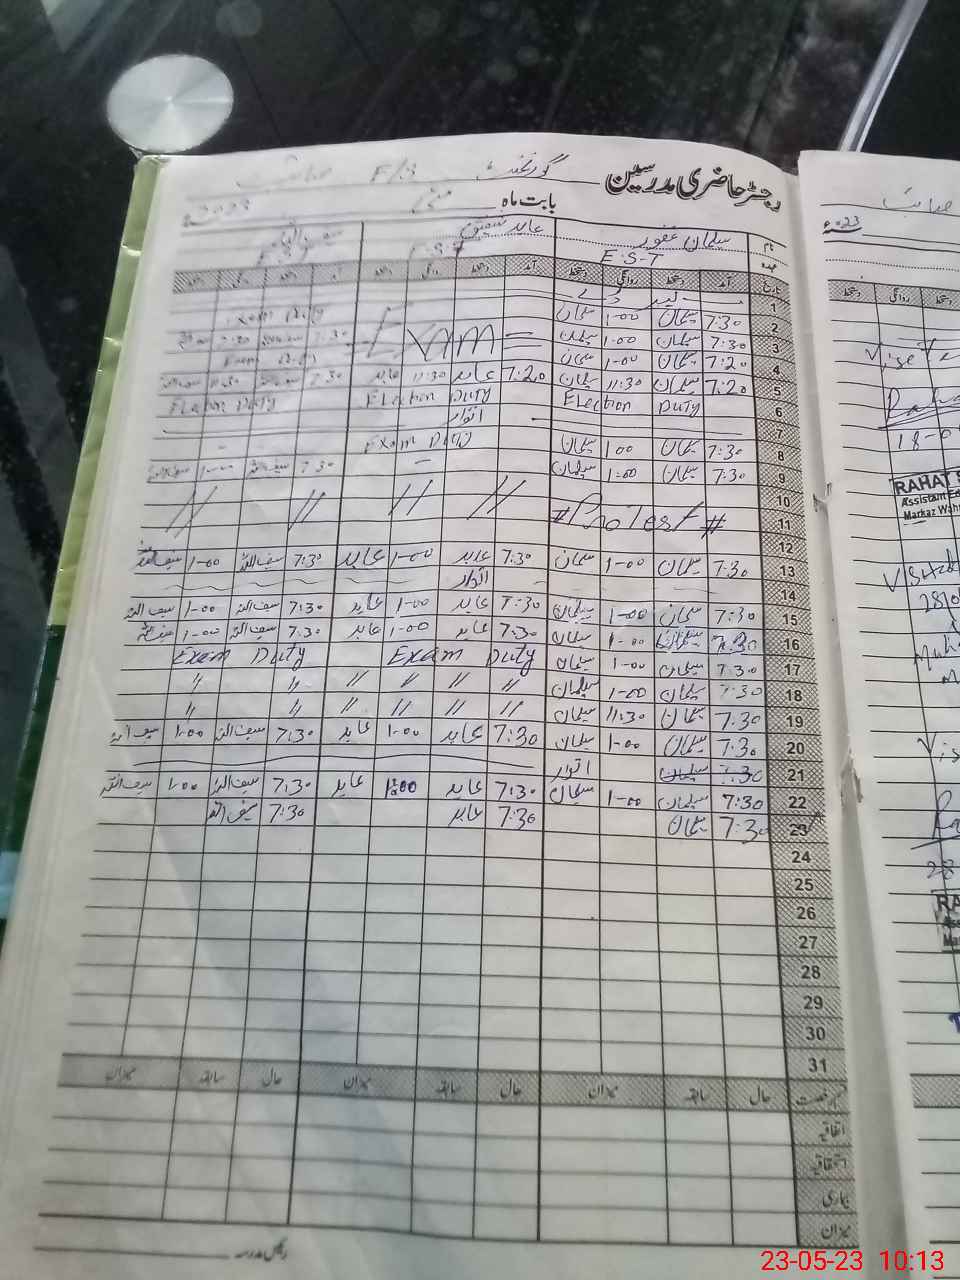 رجسٹر حاضری مدرسین گورنمنٹ F/S
بابت ماہ مئی 2023
نام سلمان غفور عابد شفیق سیف اللہ
عہدہ E.S.T E.S.T E.S.T
تاریخ آمد دستخط روانگی دستخط آمد دستخط روانگی دستخط آمد دستخط روانگی دستخط
1
2 7:30 سلمان 1-00 سلمان Exam Duty
3 7:30 سلمان 1-00 سلمان Exam 7:30
4 7:20 سلمان 1-00 سلمان Exam Duty
5 7:20 سلمان 11:30 سلمان 7:20 عابد 11:30 عابد 7:30 سیف اللہ 11:30 سیف اللہ
6 Election Duty Election Duty Election Duty
7 اتوار
8 7:30 سلمان 1-00 سلمان Exam Duty
9 7:30 سلمان 1-00 سلمان – 7:30 سیف اللہ 1-00 سیف اللہ
10 // // // //
11 # ProTest #
12
13 7:30 سلمان 1-00 سلمان 7:30 عابد 1-00 عابد 7:30 سیف اللہ 1-00 سیف اللہ
14 اتوار
15 7:30 سلمان 1-00 سلمان 7:30 عابد 1-00 عابد 7:30 سیف اللہ 1-00 سیف اللہ
16 7:30 سلمان 1-00 سلمان 7:30 عابد 1-00 عابد 7:30 سیف اللہ 1-00 سیف اللہ
17 7:30 سلمان 1-00 سلمان Exam Duty Exam Duty
18 7:30 سلمان 1-00 سلمان // // // // // //
19 7:30 سلمان 11:30 سلمان // // // // // //
20 7:30 سلمان 1-00 سلمان 7:30 عابد 1-00 عابد 7:30 سیف اللہ 1-00 سیف اللہ
21 7:30 سلمان اتوار
22 7:30 سلمان 1-00 سلمان 7:30 عابد 1:00 عابد 7:30 سیف اللہ 1-00 سیف اللہ
23 7:30 سلمان 7:30 عابد 7:30 سیف اللہ
24
25
26
27
28
29
30
31
حال سابقہ میزان حال سابقہ میزان حال سابقہ میزان
اتفاقیہ
استحقاقیہ
بیماری
میزان
رئیس مدرسہ
صاحب
2023
دستخط روانگی دستخط
18-0
RAHAT S
Assistant Ed
Markaz Wah
RA
Ass
Mar
23-05-23 10:13